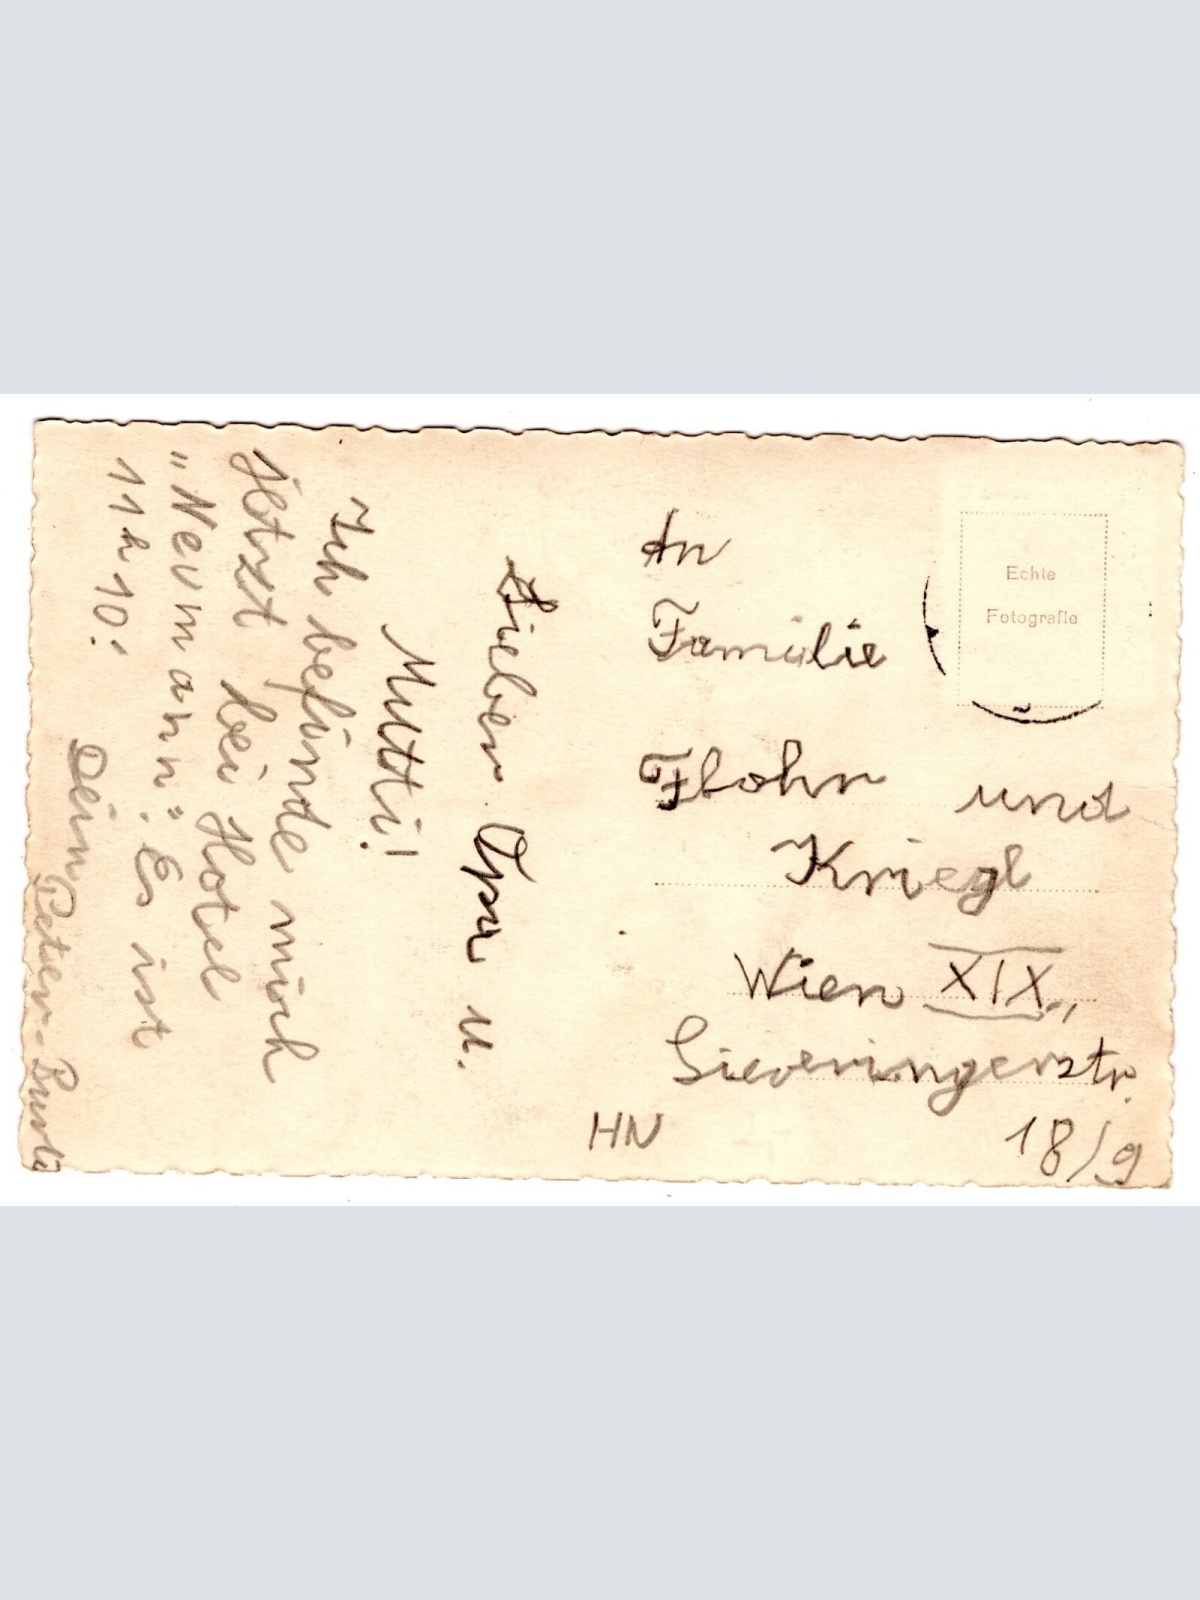 Lieber Opa u.
Mutti!
Ich befinde mich
jetzt bei Hotel
„Neumann“. Es ist
11h 10'.
Dein
Peter-Burli
Echte
Fotografie
An
Familie
Flohr und
Kriegl
Wien XIX.,
Sieveringerstr.
18/9
HN